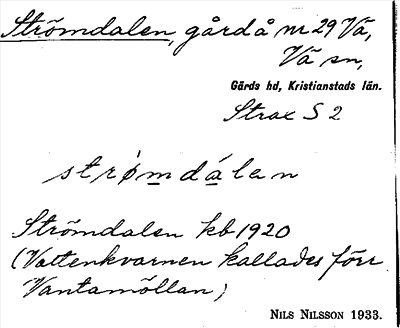 Strömdalen, gård å nr 29 Vä,
Vä sn,
Gärds hd, Kristianstads län.
Strax S 2
strø̀mdálen
Strömdalen kb 1920
(Vattenkvarnen kallades förr
Vantamöllan)
NILS NILSSON 1933.